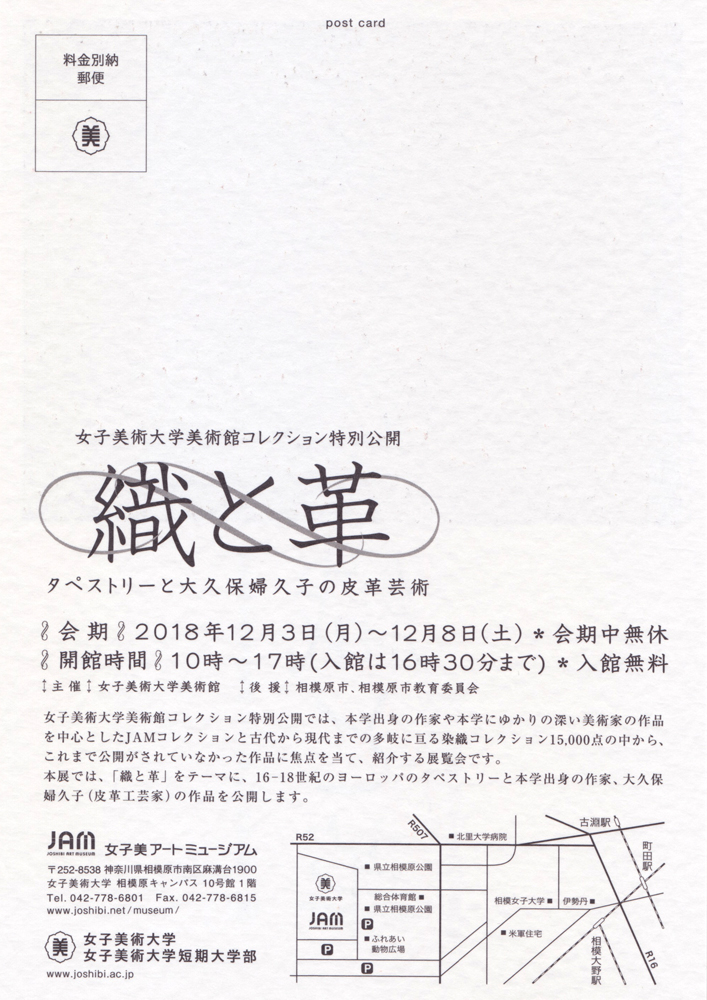 post card
料金別納
郵便
美
女子美術大学美術館コレクション特別公開
織と革
タペストリーと大久保婦久子の皮革芸術
会期 2018年12月3日(月)〜12月8日(土) *会期中無休
開館時間 10時〜17時(入館は16時30分まで) *入館無料
主催 女子美術大学美術館 後援 相模原市、相模原市教育委員会
女子美術大学美術館コレクション特別公開では、本学出身の作家や本学にゆかりの深い美術家の作品
を中心としたJAMコレクションと古代から現代までの多岐に亘る染織コレクション15,000点の中から、
これまで公開がされていなかった作品に焦点を当て、紹介する展覧会です。
本展では、「織と革」をテーマに、16-18世紀のヨーロッパのタペストリーと本学出身の作家、大久保
婦久子(皮革工芸家)の作品を公開します。
JAM 女子美アートミュージアム
JOSHIBI ART MUSEUM
〒252-8538 神奈川県相模原市南区麻溝台1900
女子美術大学 相模原キャンパス 10号館1階
Tel. 042-778-6801 Fax. 042-778-6815
www.joshibi.net/museum/
美 女子美術大学
女子美術大学短期大学部
www.joshibi.ac.jp
R52
R507
北里大学病院
古淵駅
町田駅
県立相模原公園
美
女子美術大学
JAM
JOSHIBI ART MUSEUM
総合体育館
県立相模原公園
P
ふれあい
動物広場
P
P
相模女子大学
伊勢丹
米軍住宅
相模大野駅
R16